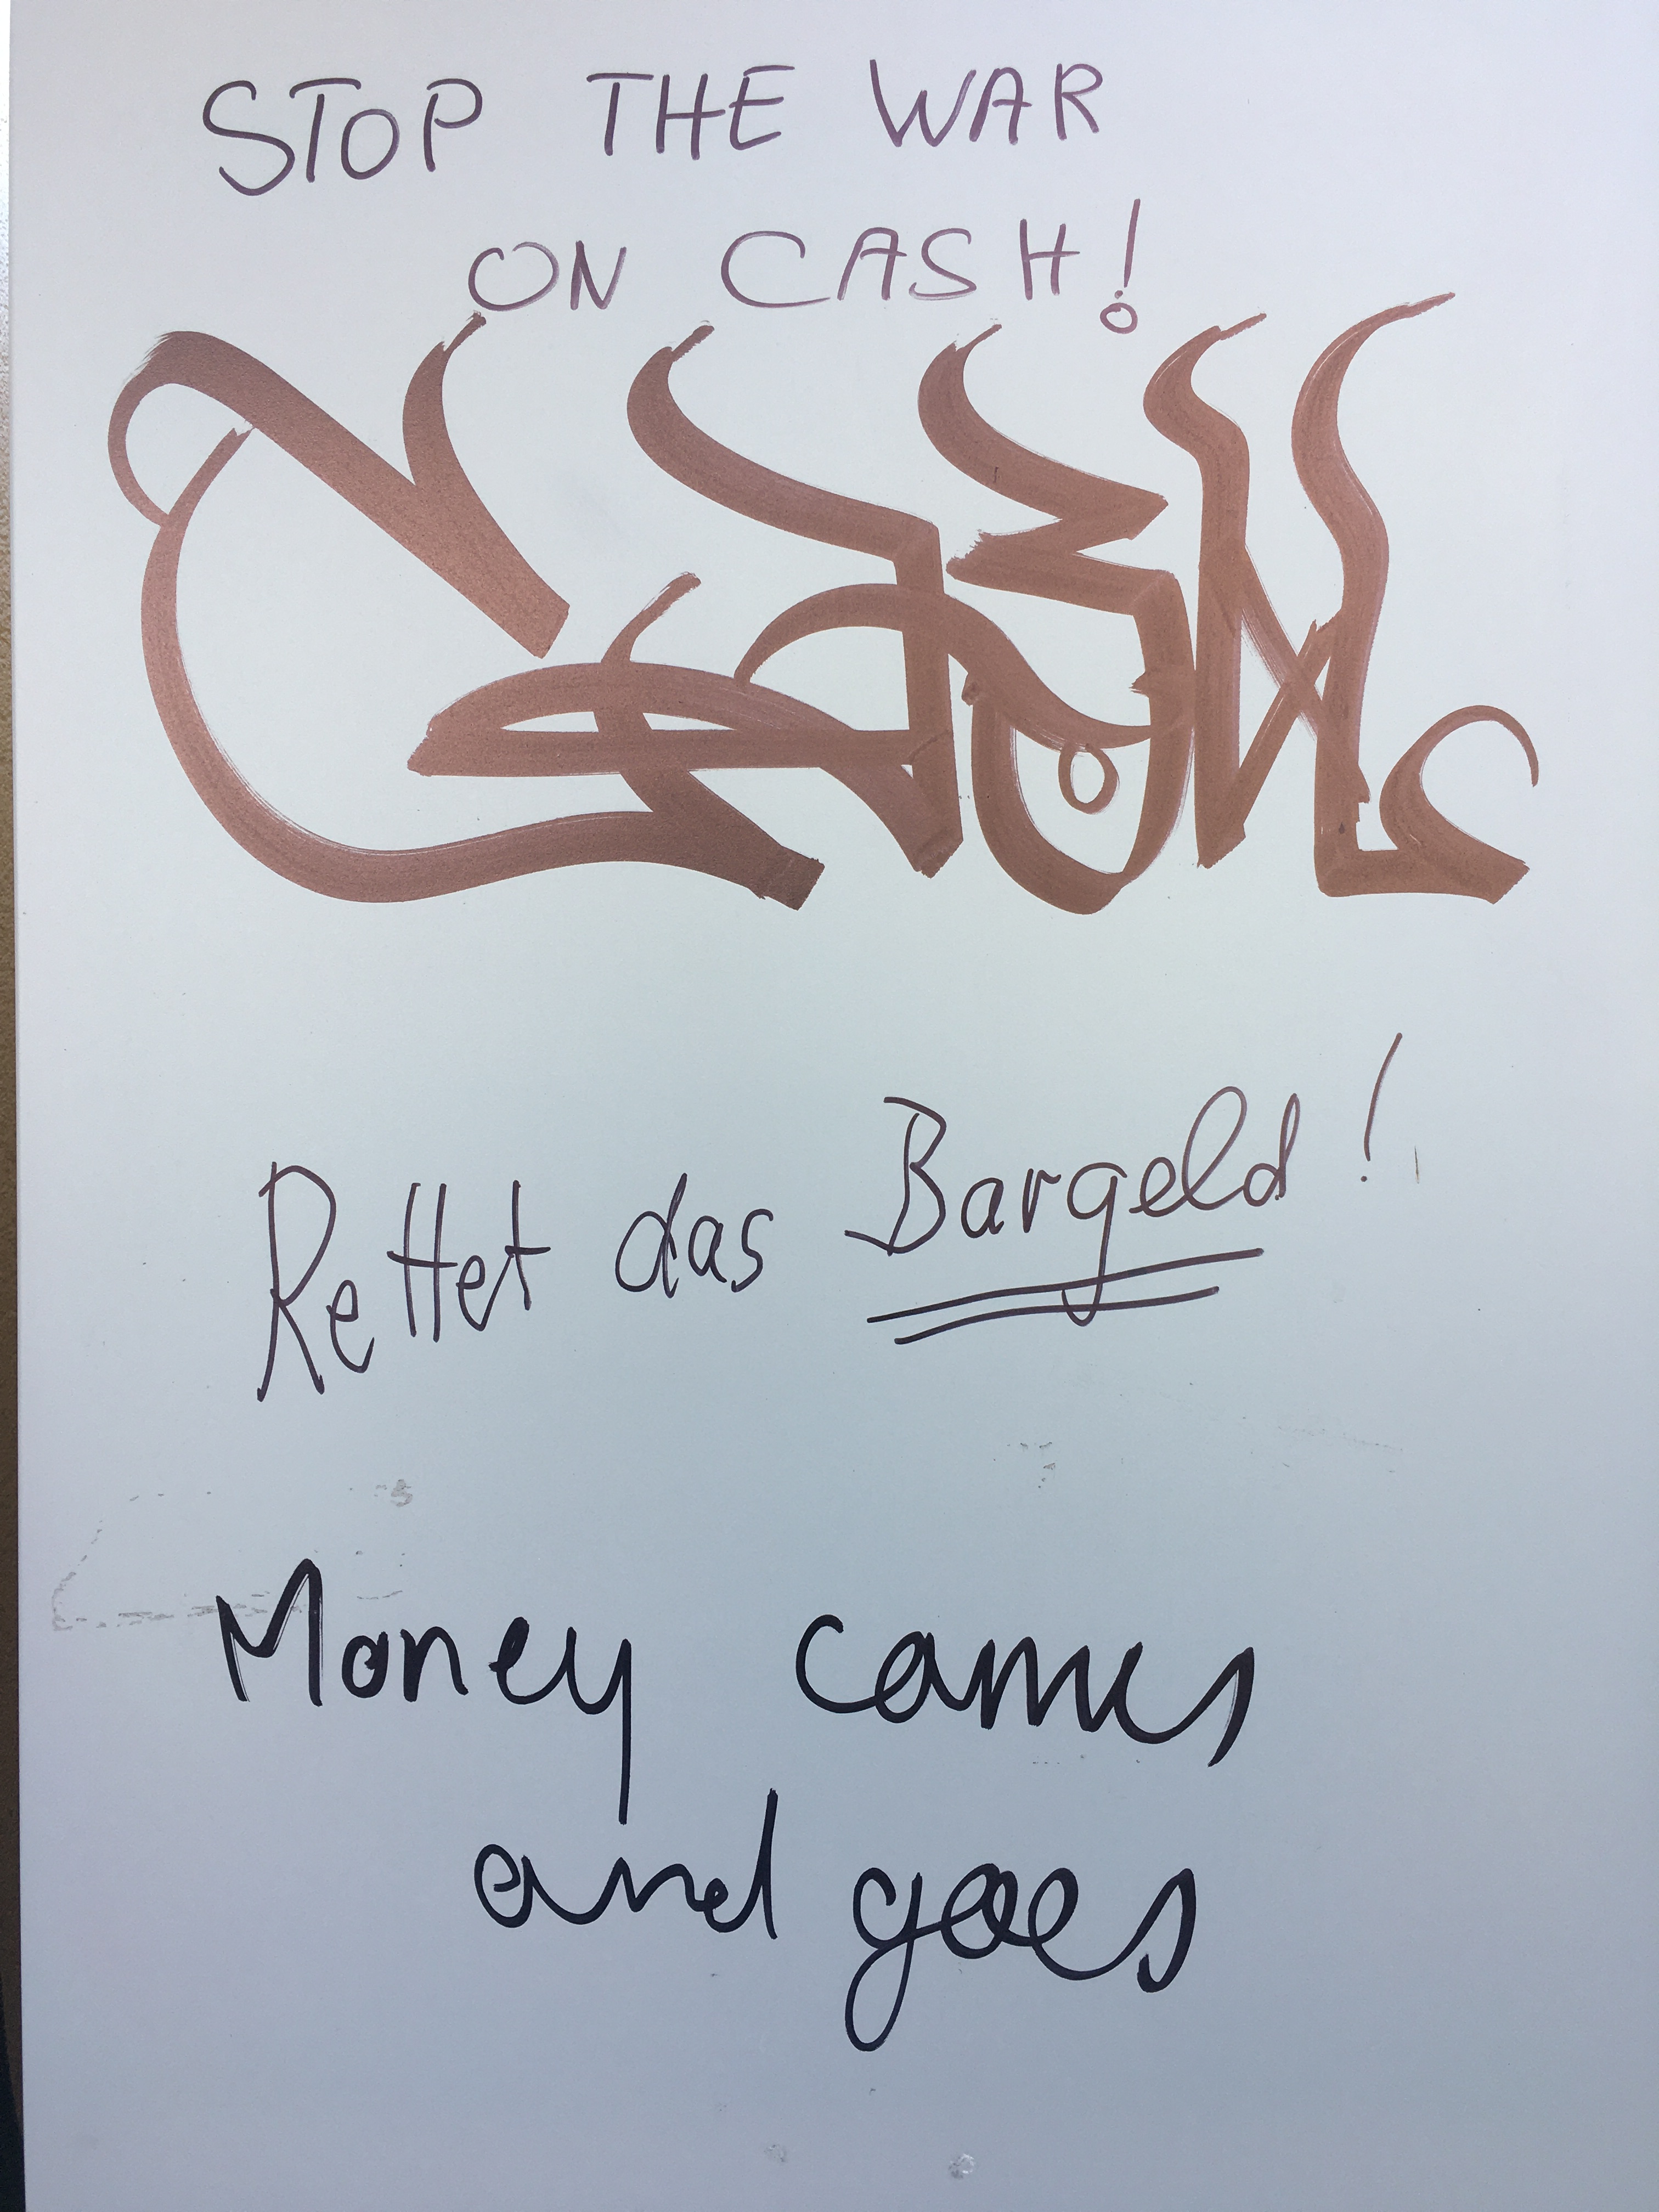 STOP THE WAR
ON CASH!
Rettet das Bargeld!
Money comes
and goes